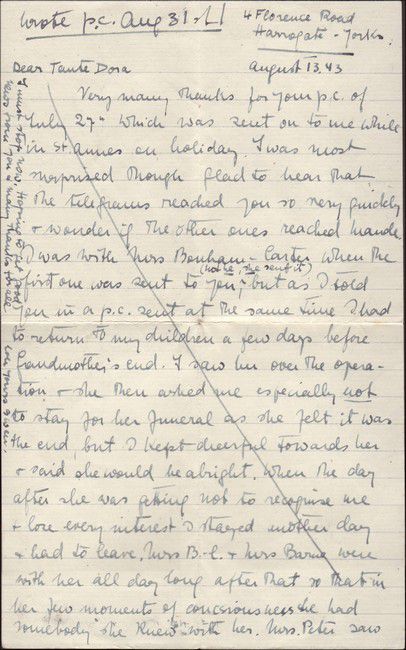 wrote p.c. Aug 31.
4 Florence Road
Harrogate - Yorks.
August 13. 43
Dear Tante Dora
Very many thanks for your p.c. of
July 27th which was sent on to me while
in St Annes on holiday. I was most
surprised though glad to hear that
the telegrams reached you so very quickly
& wonder if the other ones reached Hande.
I was with Mrs Bonham-Carter when the
(not he, she sent it)
first one was sent to you, but as I told
you in a p.c. sent at the same time I had
to return to my children a few days before
Grandmother's end. I saw her over the opera-
tion & she then asked me especially not
to stay for her funeral as she felt it was
the end, but I kept cheerful towards her
& said she would be alright. When the day
after she was getting not to recognise me
& lose every interest I stayed another day
& had to leave. Mrs B.-C. & Mrs Barne were
with her all day long after that so that in
her few moments of conciousness she had
somebody she knew with her. Mrs. Peter saw
I must stop now. Hoping to get good
news from you & many thanks for all